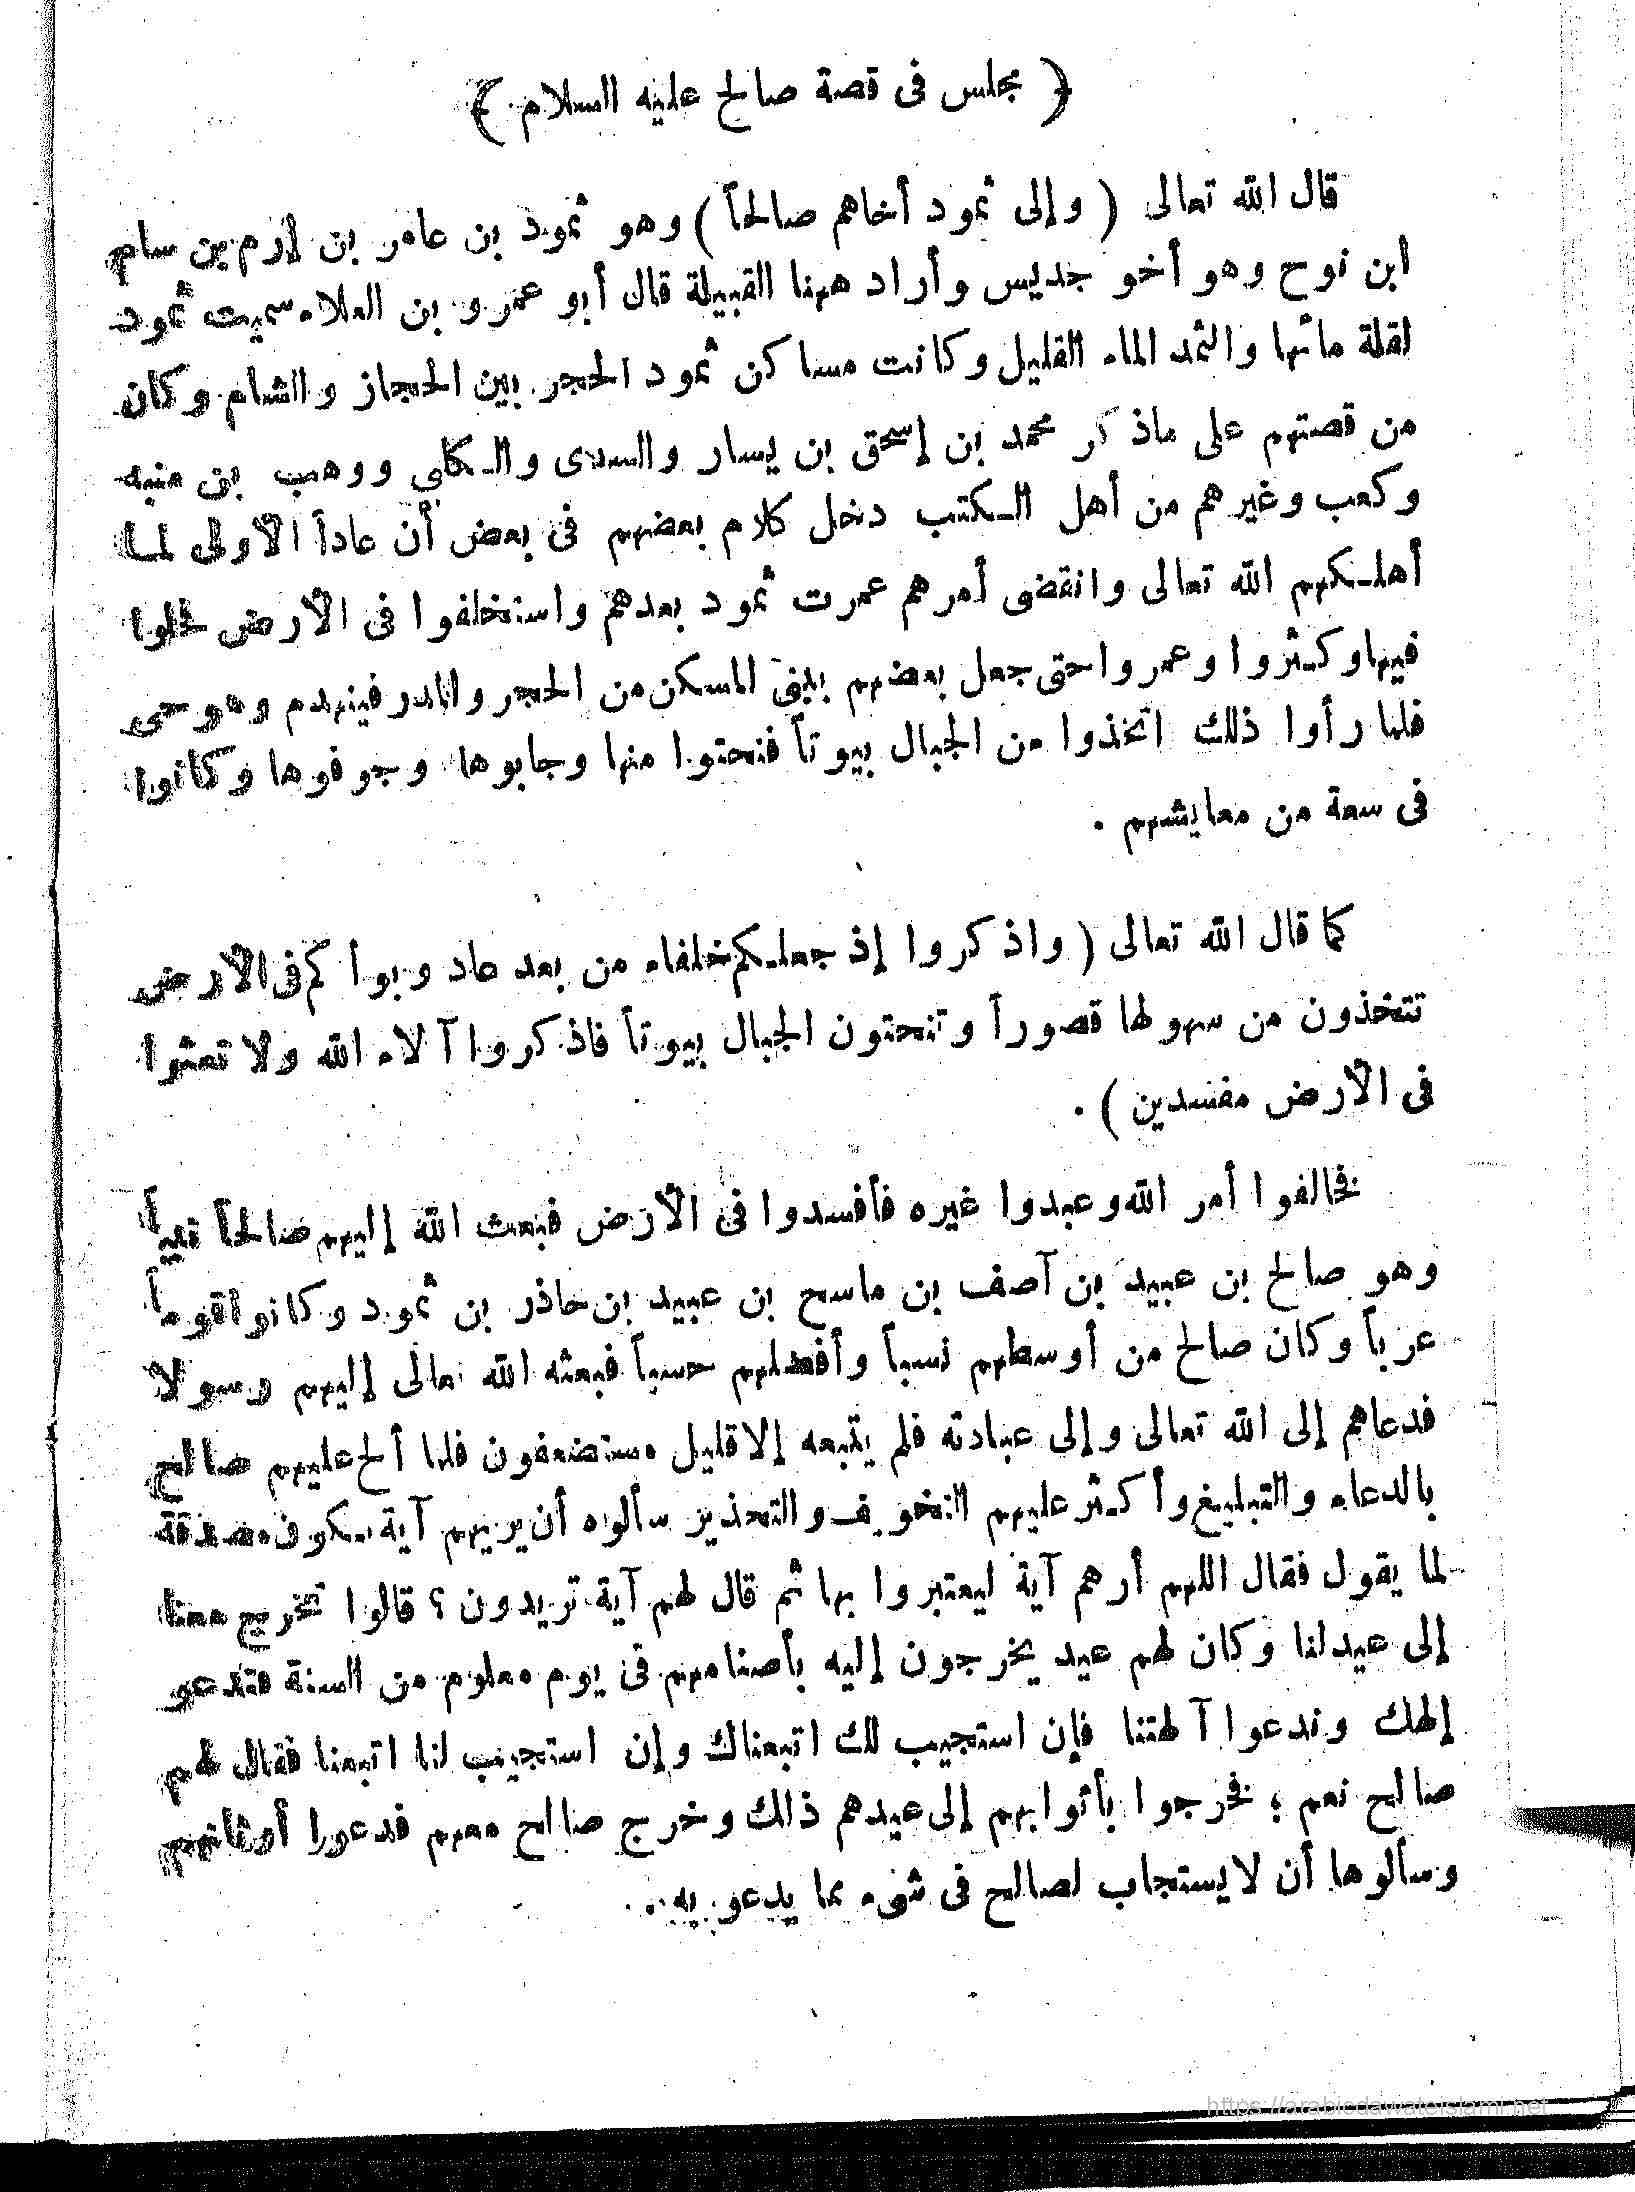 ﴿ مجلس فى قصة صالح عليه السلام ﴾
قال الله تعالى ( وإلى ثمود أخاهم صالحاً ) وهو ثمود بن عامر بن إرم بن سام
ابن نوح وهو أخو جديس وأراد ههنا القبيلة قال أبو عمرو بن العلاء سميت ثمود
لقلة مائها والثمد الماء القليل وكانت مساكن ثمود الحجر بين الحجاز والشام وكان
من قصتهم على ماذكر محمد بن إسحق بن يسار والسدى والكلبي ووهب بن منبه
وكعب وغيرهم من أهل الكتب دخل كلام بعضهم فى بعض أن عاداً الأولى لما
أهلكهم الله تعالى وانقضى أمرهم عمرت ثمود بعدهم واستخلفوا فى الأرض فحلوا
فيها وكثروا وعمروا حتى جعل بعضهم يبنى المسكن من الحجر والمدر فينهدم وهو حى
فلما رأوا ذلك اتخذوا من الجبال بيوتاً فنحتوا منها وجابوها وجوفوها وكانوا
فى سعة من معايشهم .
كما قال الله تعالى ( واذكروا إذ جعلكم خلفاء من بعد عاد وبوأكم فى الأرض
تتخذون من سهولها قصوراً وتنحتون الجبال بيوتاً فاذكروا آلاء الله ولا تعثوا
فى الأرض مفسدين ) .
فخالفوا أمر الله وعبدوا غيره فأفسدوا فى الأرض فبعث الله إليهم صالحاً نبياً
وهو صالح بن عبيد بن آصف بن ماسح بن عبيد بن حاذر بن ثمود وكانوا قوماً
عرباً وكان صالح من أوسطهم نسباً وأفضلهم حسباً فبعثه الله تعالى إليهم رسولا
فدعاهم إلى الله تعالى وإلى عبادته فلم يتبعه إلا قليل مستضعفون فلما ألح عليهم صالح
بالدعاء والتبليغ وأكثر عليهم التخويف والتحذير سألوه أن يريهم آية تكون مصدقة
لما يقول فقال اللهم أرهم آية ليعتبروا بها ثم قال لهم آية تريدون ؟ قالوا تخرج معنا
إلى عيد لنا وكان لهم عيد يخرجون إليه بأصنامهم فى يوم معلوم من السنة فتدعو
إلهك وندعوا آلهتنا فإن استجيب لك اتبعناك وإن استجيب لنا اتبعنا فقال لهم
صالح نعم ؛ فخرجوا بأثوابهم إلى عيدهم ذلك وخرج صالح معهم فدعوا أوثانهم
وسألوها أن لا يستجاب لصالح فى شىء مما يدعو به .
https://arabicdawateislami.net